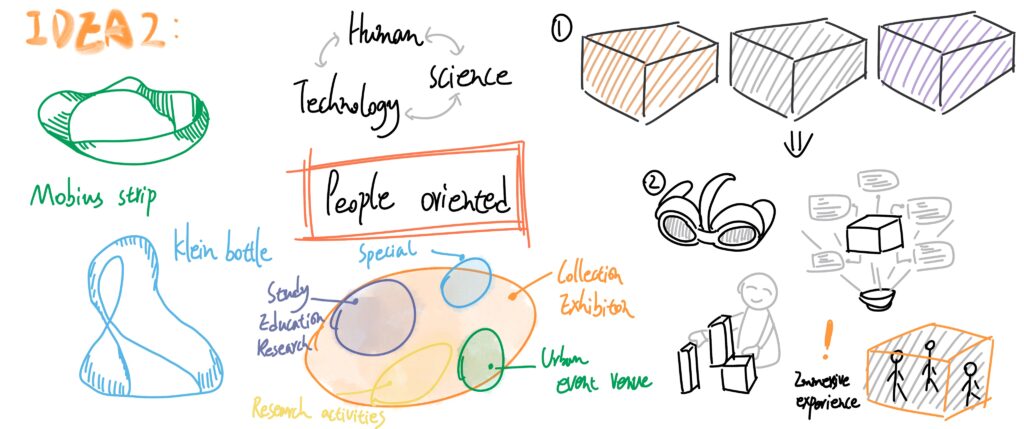 IDEA2:
Mobius strip
Klein bottle
Human
science
Technology
People oriented
Special
Study
Education
Research
Collection
Exhibiton
Urban
event venue
Research activities
①
②
!
Immersive
experience